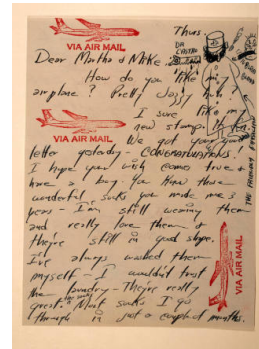 Thurs
VIA AIR MAIL
Dear Martha & Mike.
How do you like my
airplane? Pretty Jazzy huh?
I sure like my
VIA AIR MAIL
new stamps
We got your
letter yesterday - CONGRATULATIONS.
I hope your wish comes true &
have a boy. You know those
wonderful socks you made me 3
years - I'm still wearing them
and really love them &
they're still in good shape.
I've always washed them
myself - I wouldn't trust
the laundry - They're really
great. Most socks I go
through in just a couple of months.
VIA AIR MAIL